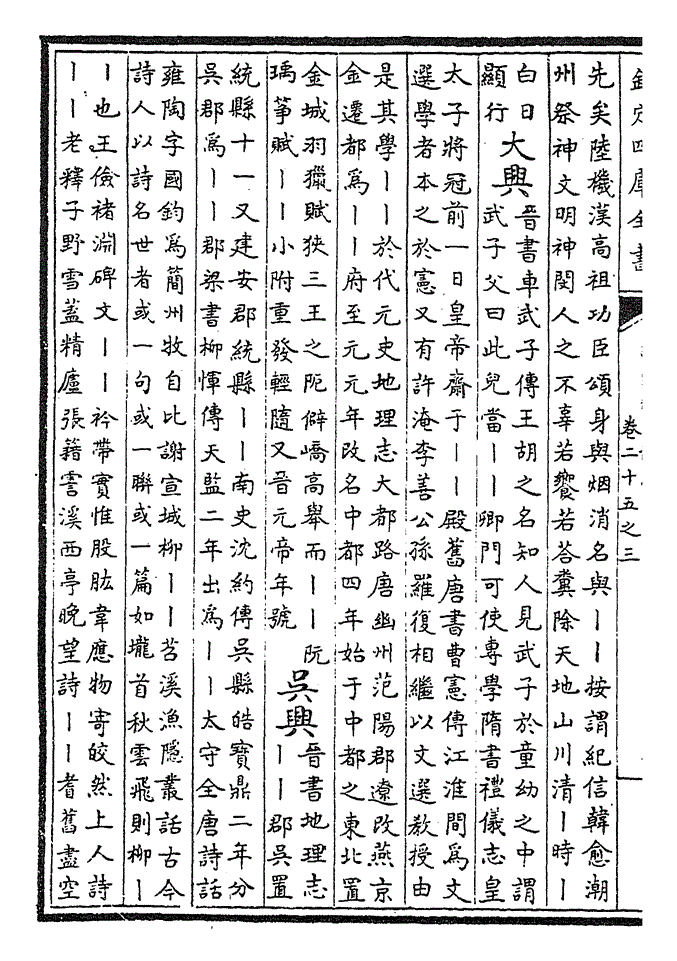 欽定四庫全書
卷二十五之三
先矣陸機漢高祖功臣頌身與烟消名與丨丨按謂紀信韓愈潮
州祭神文明神閔人之不辜若饗若荅糞除天地山川清丨時丨
白日
顯行
大興
晉書車武子傳王胡之名知人見武子於童幼之中謂
武子父曰此兒當丨丨卿門可使專學隋書禮儀志皇
太子將冠前一日皇帝齋于丨丨殿舊唐書曹憲傳江淮間為文
選學者本之於憲又有許淹李善公孫羅復相繼以文選教授由
是其學丨丨於代元史地理志大都路唐幽州范陽郡遼改燕京
金遷都為丨丨府至元元年改名中都四年始于中都之東北置
金城羽獵賦狹三王之阨僻嶠高舉而丨丨阮
瑀箏賦丨丨小附重發輕隨又晉元帝年號
吳興
晉書地理志
丨丨郡吳置
統縣十一又建安郡統縣丨丨南史沈約傳吳縣皓寶鼎二年分
吳郡為丨丨郡梁書柳惲傳天監二年出為丨丨太守全唐詩話
雍陶字國鈞為簡州牧自比謝宣城柳丨丨苕溪漁隱叢話古今
詩人以詩名世者或一句或一聯或一篇如壠首秋雲飛則柳丨
丨也王儉褚淵碑文丨丨衿帶實惟股肱韋應物寄皎然上人詩
丨丨老釋子野雪蓋精廬張籍霅溪西亭晚望詩丨丨耆舊盡空